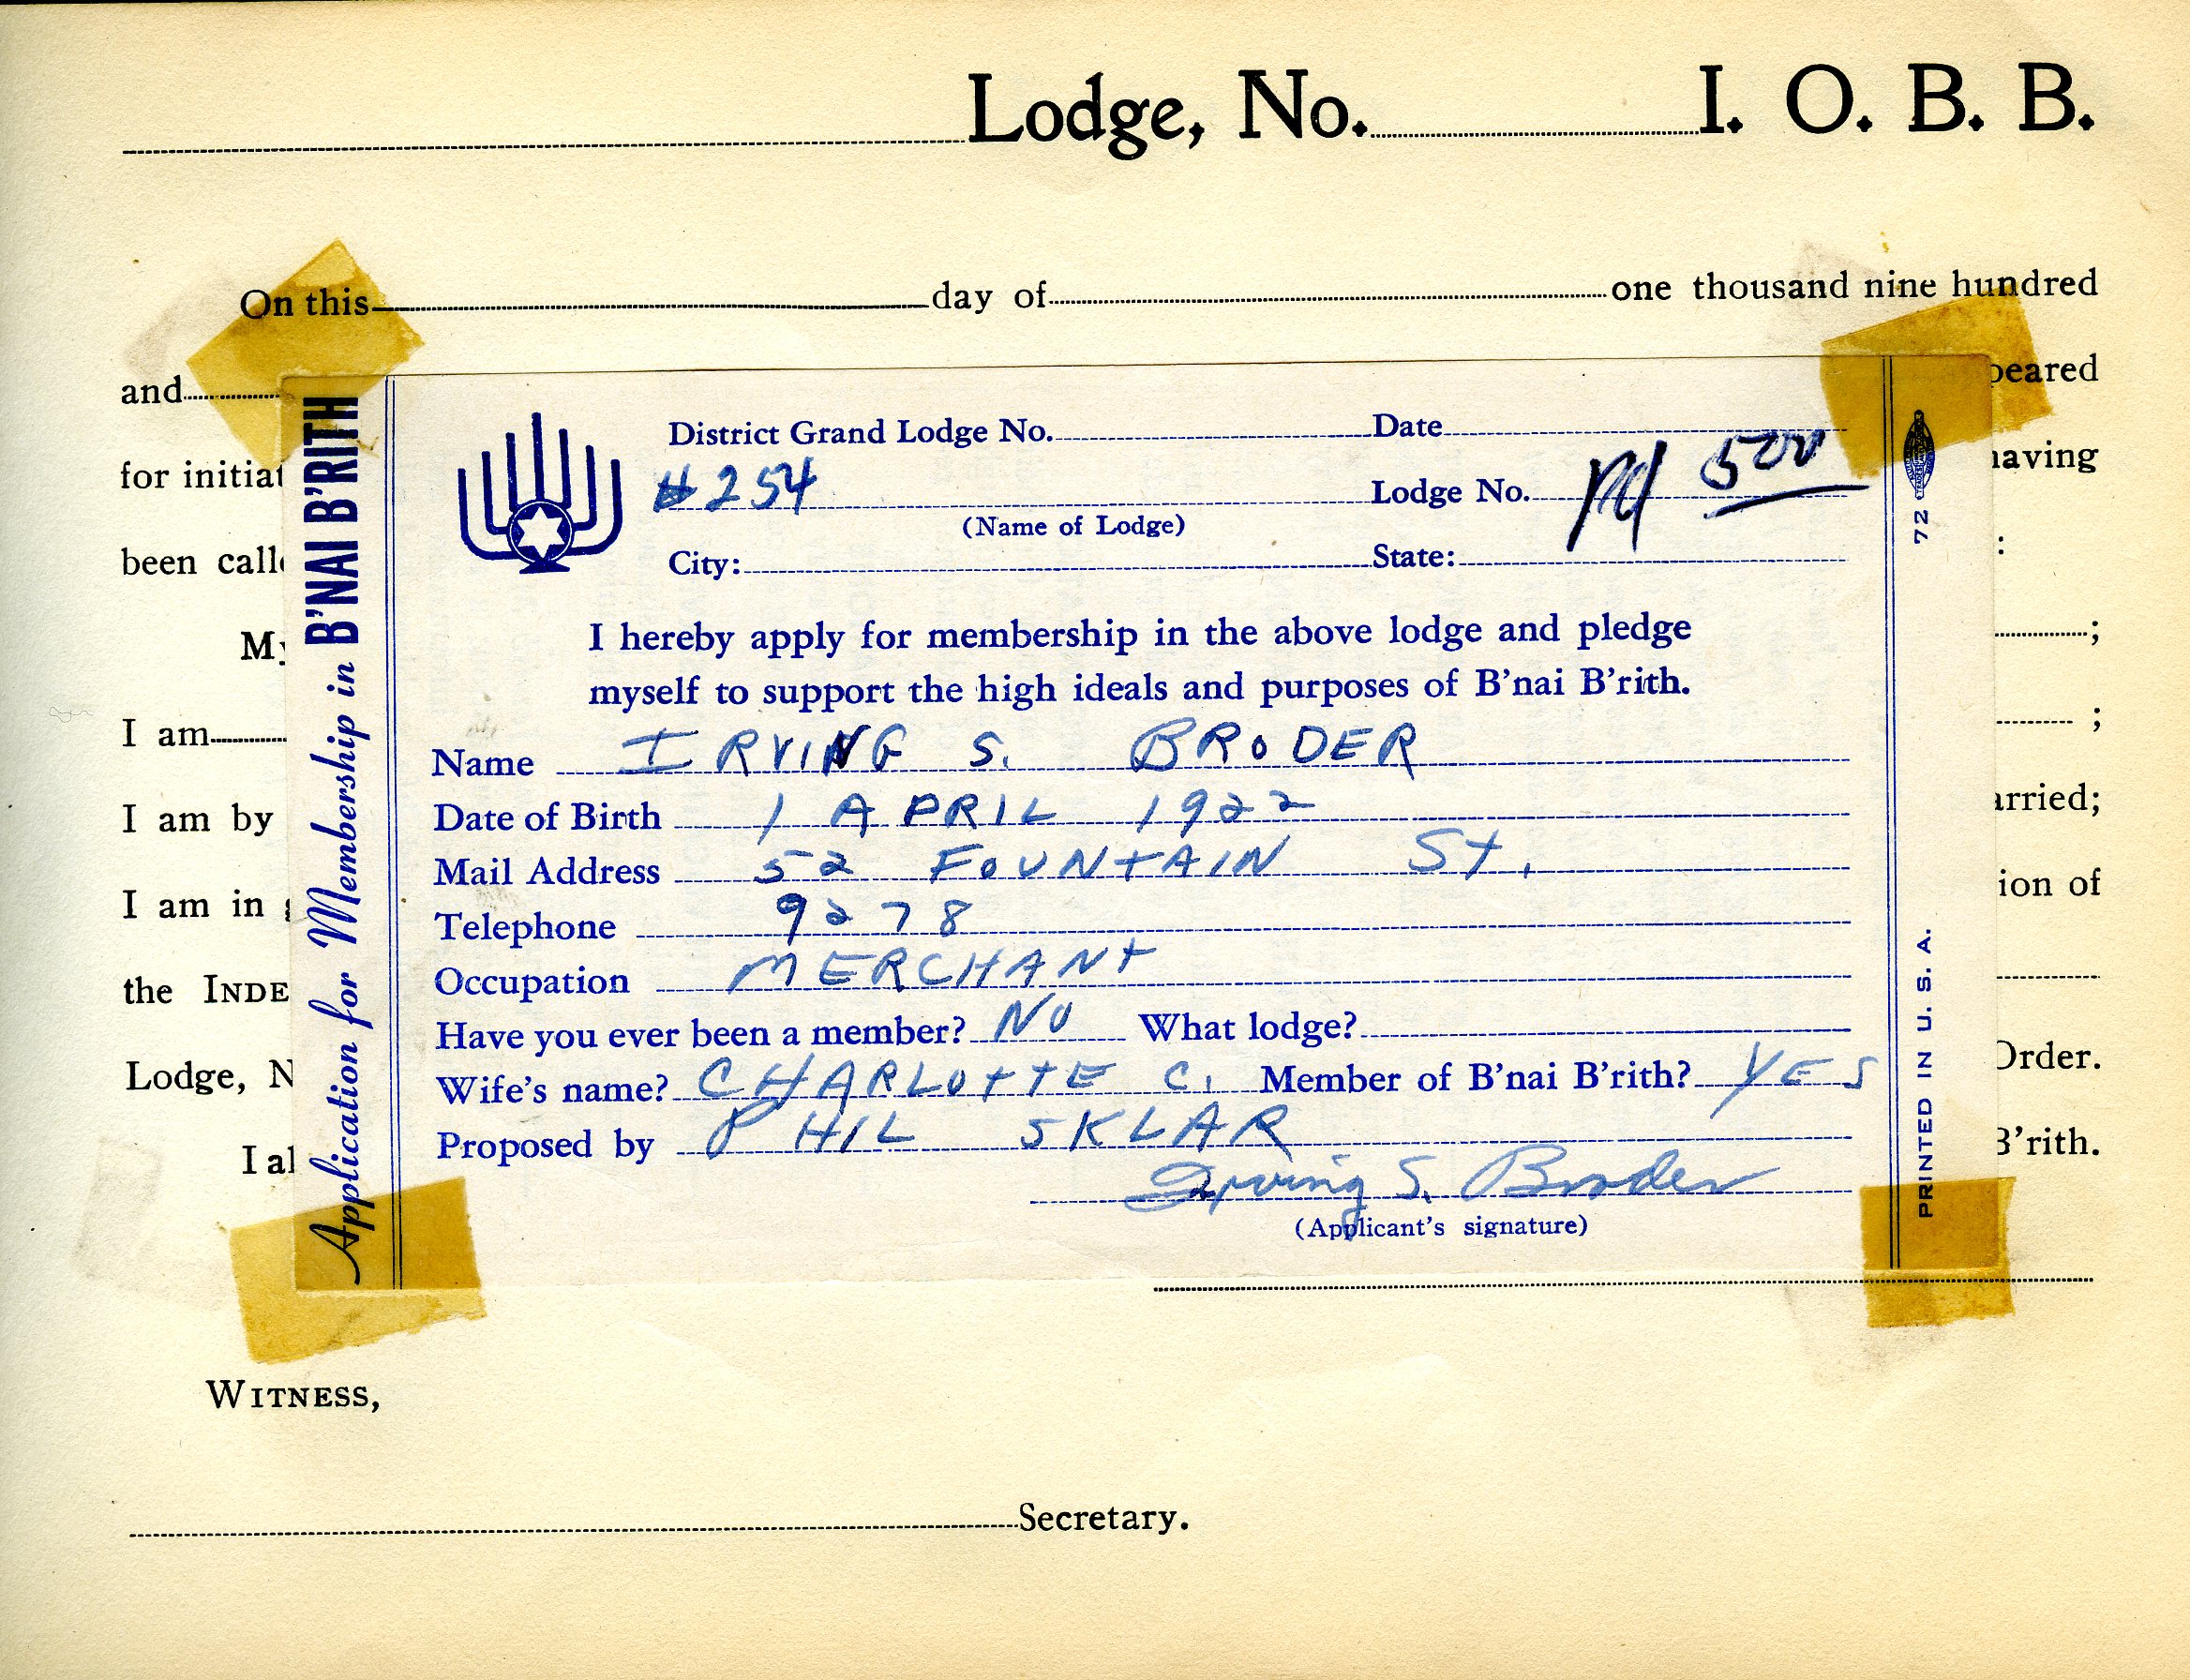 Lodge, No. I. O. B. B.
On this day of one thousand nine hundred
and peared
for initiat having
been calle :
My ;
I am ;
I am by arried;
I am in g ion of
the INDE
Lodge, N Order.
I al B'rith.
Application for Membership in B'NAI B'RITH
District Grand Lodge No. Date
#254 Lodge No. Pd 500
(Name of Lodge)
City: State:
I hereby apply for membership in the above lodge and pledge
myself to support the high ideals and purposes of B'nai B'rith.
Name IRVING S. BRODER
Date of Birth 1 APRIL 1922
Mail Address 52 FOUNTAIN St.
Telephone 9278
Occupation MERCHANT
Have you ever been a member? NO What lodge?
Wife's name? CHARLOTTE C. Member of B'nai B'rith? YES
Proposed by PHIL SKLAR
Irving S. Broder
(Applicant's signature)
72
PRINTED IN U. S. A.
WITNESS,
Secretary.